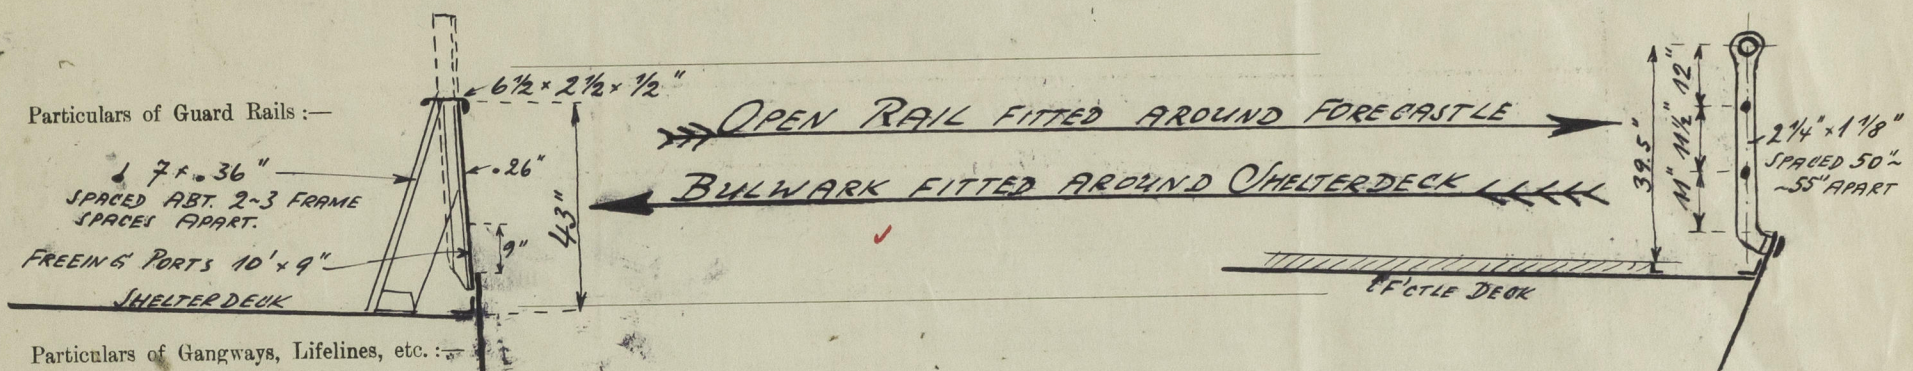 Particulars of Guard Rails :—
6 1/2 × 2 1/2 × 1/2"
7 × .36"
SPACED ABT. 2~3 FRAME
SPACES APART.
.26"
9"
43"
FREEING PORTS 10' × 9"
SHELTERDECK
OPEN RAIL FITTED AROUND FORECASTLE
BULWARK FITTED AROUND SHELTERDECK
39.5"
12"
11 1/2"
11"
2 1/4" × 1 1/8"
SPACED 50"~
~55" APART
F'CTLE DECK
Particulars of Gangways, Lifelines, etc. :—